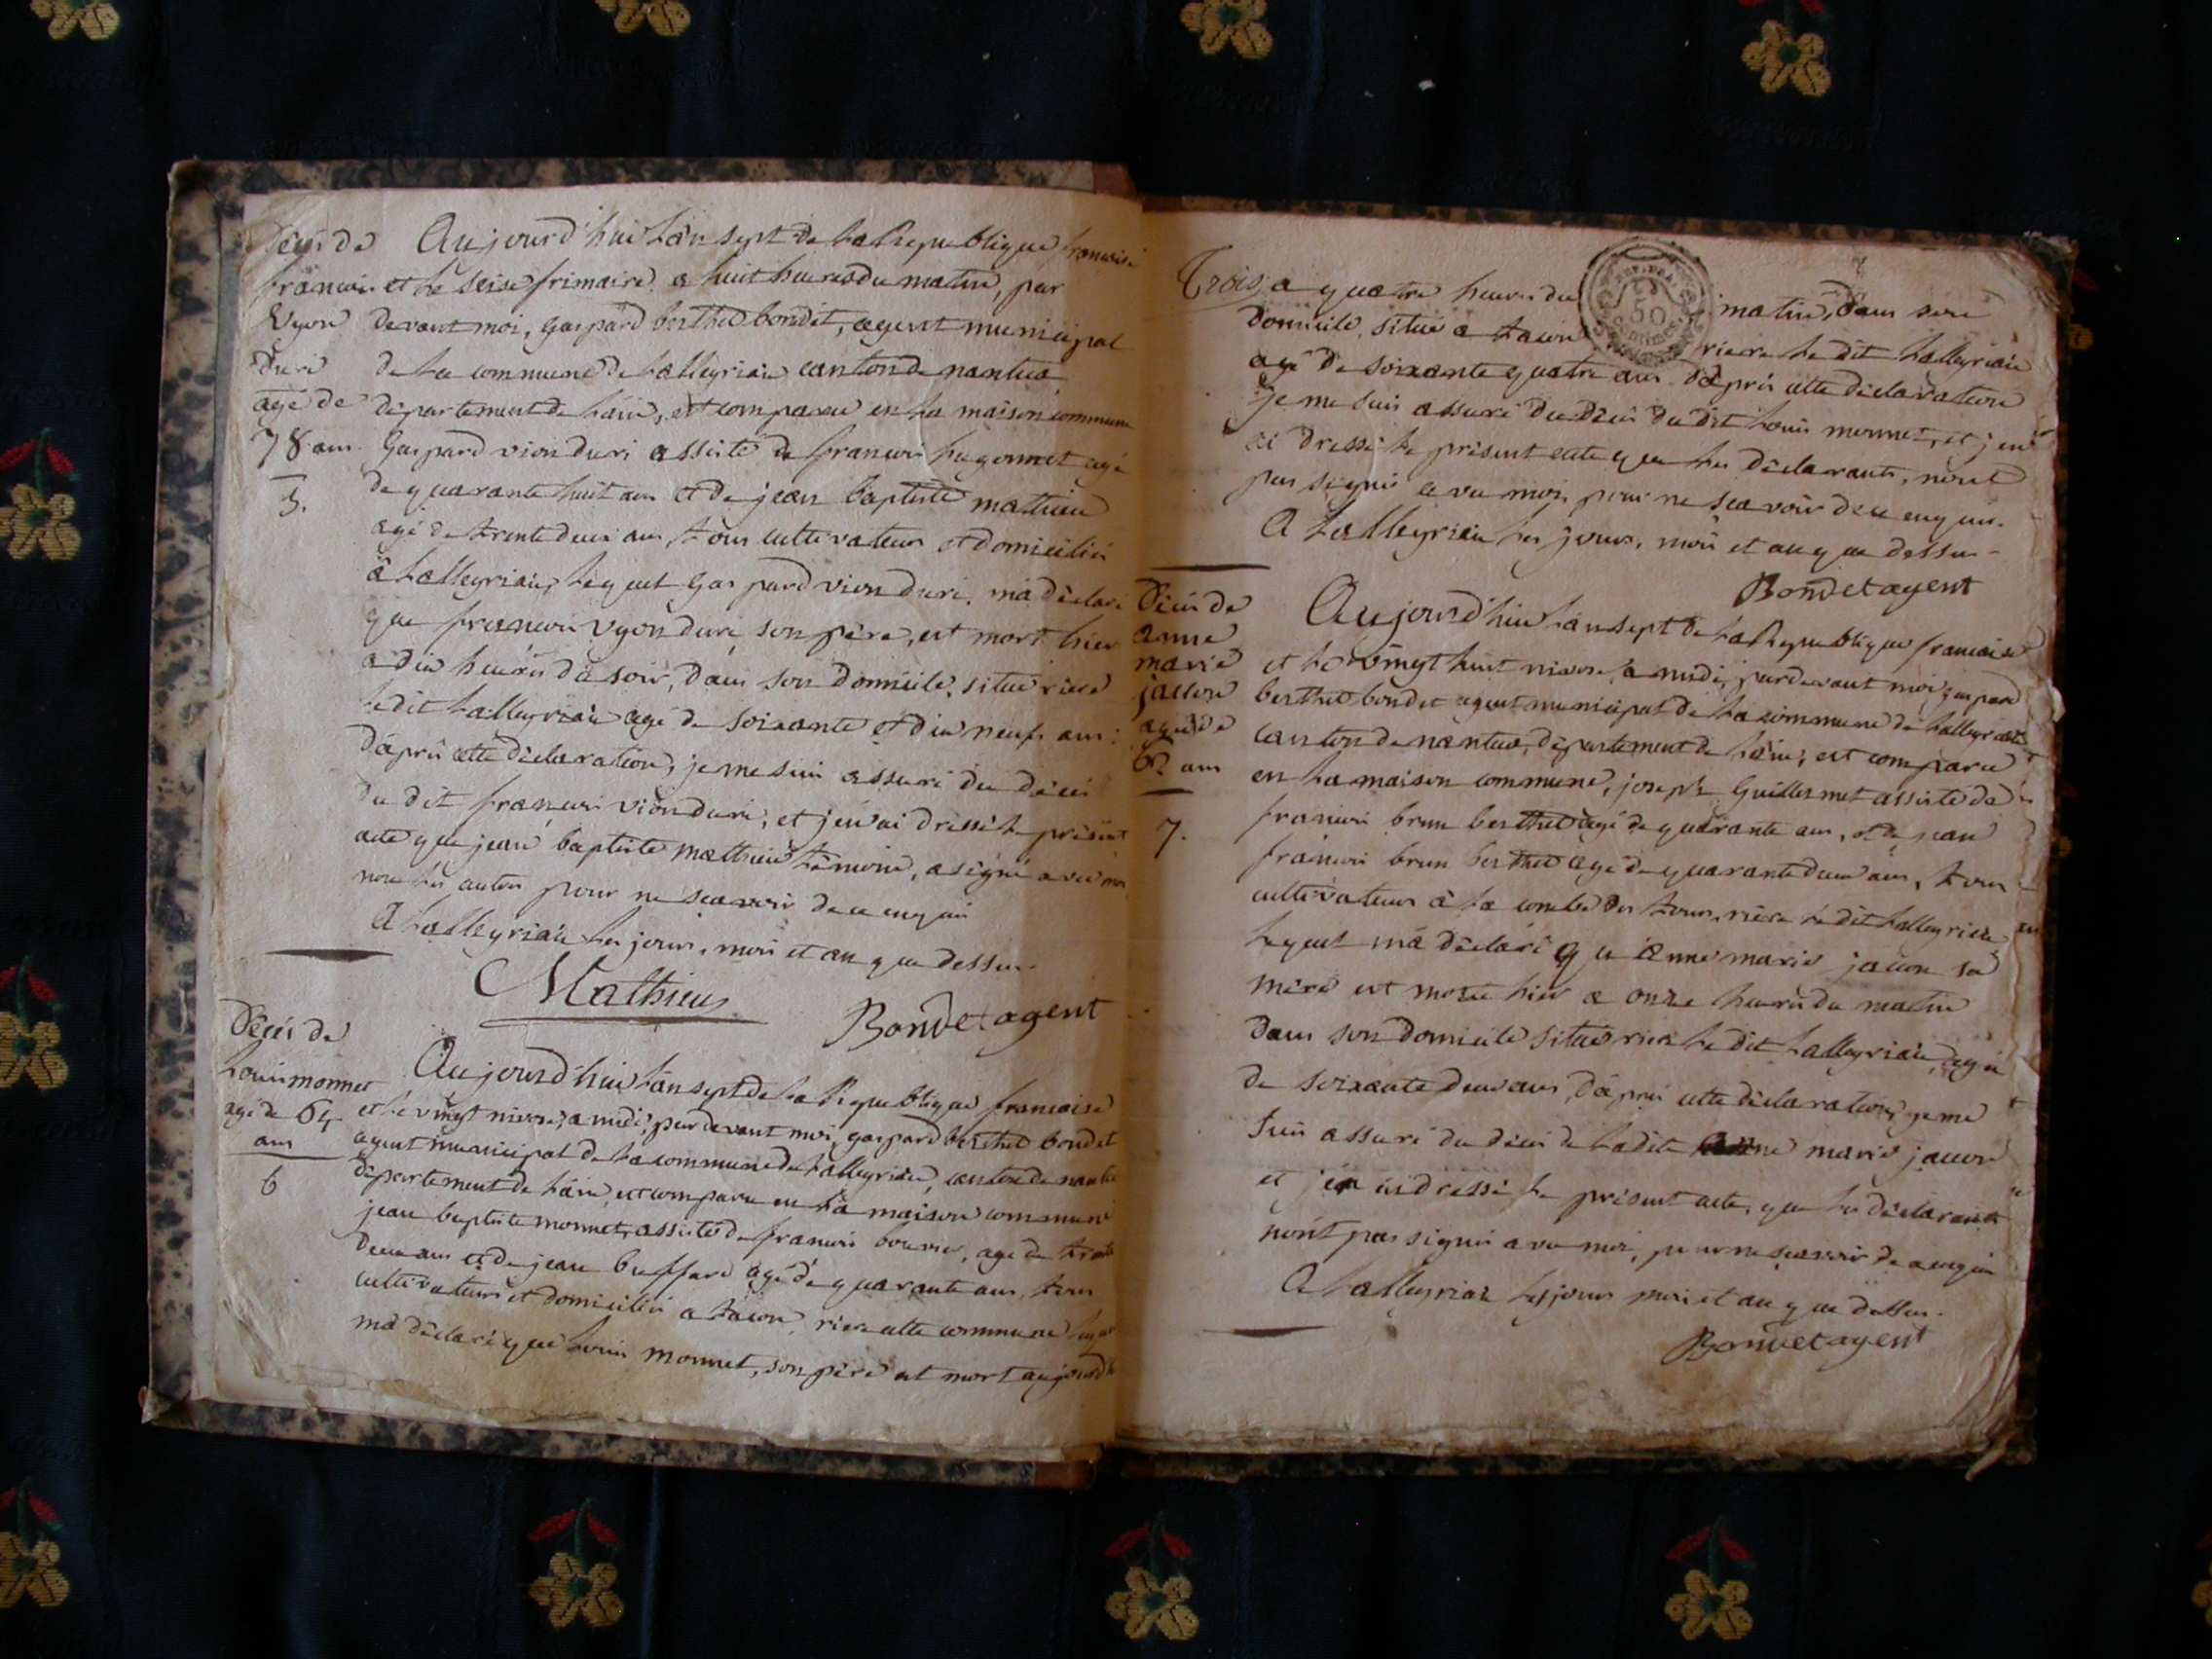 Décès de
francois
Vyon
duri
agé de
78 ans
5.
Aujourd'hui l'an sept de la Republique francoise
et le seise frimaire, a huit heures du matin, par
devant moi, gaspard berthet bondet, agent municipal
de la commune de Lalleyriat canton de nantua
département de l'ain, est comparu en la maison commune
Gaspard vion duri assisté de francois hugonnet agé
de quarante huit ans et de jean baptiste mathieu
agé de trente deux ans, tous cultivateurs et domiciliés
à Lalleyriat, lequel Gaspard vion duri, m'a déclaré
que francois vyon duri son père, est mort hier
a dix heures du soir, dans son domicile, situé riere
ledit Lalleyriat agé de soixante et dix neuf ans:
d'après cette déclaration, je me suis assuré du décès
du dit francois vion duri, et j'en ai dressé le présent
acte que jean baptiste mathieu témoin, a signé avec moi
non les autres pour ne scavoir de ce enquis
A Lalleyriat les jours, mois et an que dessus.
Mathieu
Bondet agent
Décès de
Louis monnet
agé de 64
ans
6
Aujourd'hui l'an sept de la Republique francaise
et le vingt nivose, a midi, par devant moi, gaspard berthet bondet
agent municipal de la commune de Lalleyriat, canton de nantua
département de l'ain, est comparu en la maison commune
jean baptiste monnet, assisté de francois, agé de trente
deux ans et de jean buffard agé de quarante ans, tous
cultivateurs et domiciliés a tacon, riere cette commune lequel
m'a déclaré que Louis monnet, son père est mort aujourd'h
Trois, a quatre heures du matin, dans son
domicile, situé a tacon riere le dit Lalleyriat
agé de soixante quatre ans. d'après cette déclaration
je me suis assuré du décès du dit Louis monnet, et j'en
ai dressé le présent acte que les déclarants, n'ont
pas signé avec moi, pour ne scavoir de ce enquis.
A Lalleyriat les jours, mois et an que dessus
Bondet agent
Décès de
anne
marie
jacon
agée de
62 ans
7.
Aujourd'hui l'an sept de la Republique francaise
et le vingt huit nivose, a midi, pardevant moi gaspard
berthet bondet agent municipal de la commune de Lalleyriat
canton de nantua, département de l'ain, est comparu
en la maison commune, joseph Guillermet assisté de
francois brun berthet agé de quarante ans, et de jean
francois brun berthet agé de quarante deux ans, tous
cultivateurs à la combe des tours, riere le dit Lalleyriat
lequel m'a déclaré que anne marie jacon sa
mère est morte hier a onze heures du matin
dans son domicile situé riere le dit Lalleyriat, agée
de soixante deux ans, d'après cette déclaration, je me
suis assuré du décès de ladite anne marie jacon
et j'en ai dressé le présent acte, que les déclarants
n'ont pas signé avec moi, pour ne scavoir de ce enquis
A Lalleyriat les jours mois et an que dessus.
Bondet agent